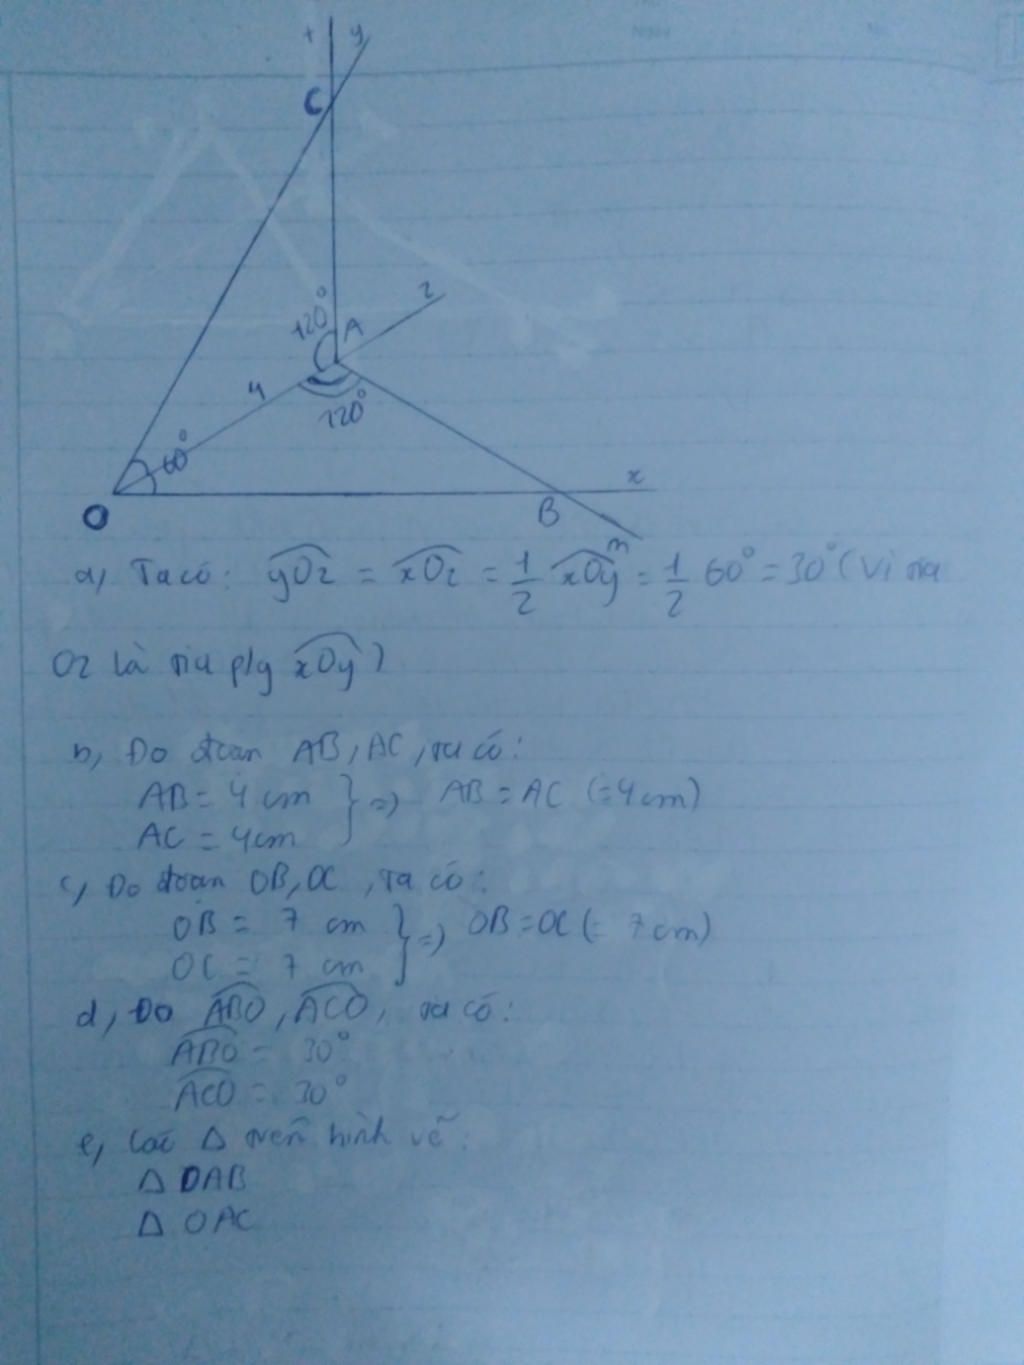 t y
C
120°
A
z
4
120°
60°
x
O
B
m
a, Ta có: yOz = xOz = 1/2 xOy = 1/2 60° = 30° (Vì tia
Oz là tia p/g xOy)
b, Đo đoạn AB, AC, ta có:
AB = 4 cm } => AB = AC (= 4 cm)
AC = 4 cm
c, Đo đoạn OB, OC, ta có:
OB = 7 cm } => OB = OC (= 7 cm)
OC = 7 cm
d, Đo ABO, ACO, ta có:
ABO = 30°
ACO = 30°
e, Các Δ trên hình vẽ:
Δ OAB
Δ OAC